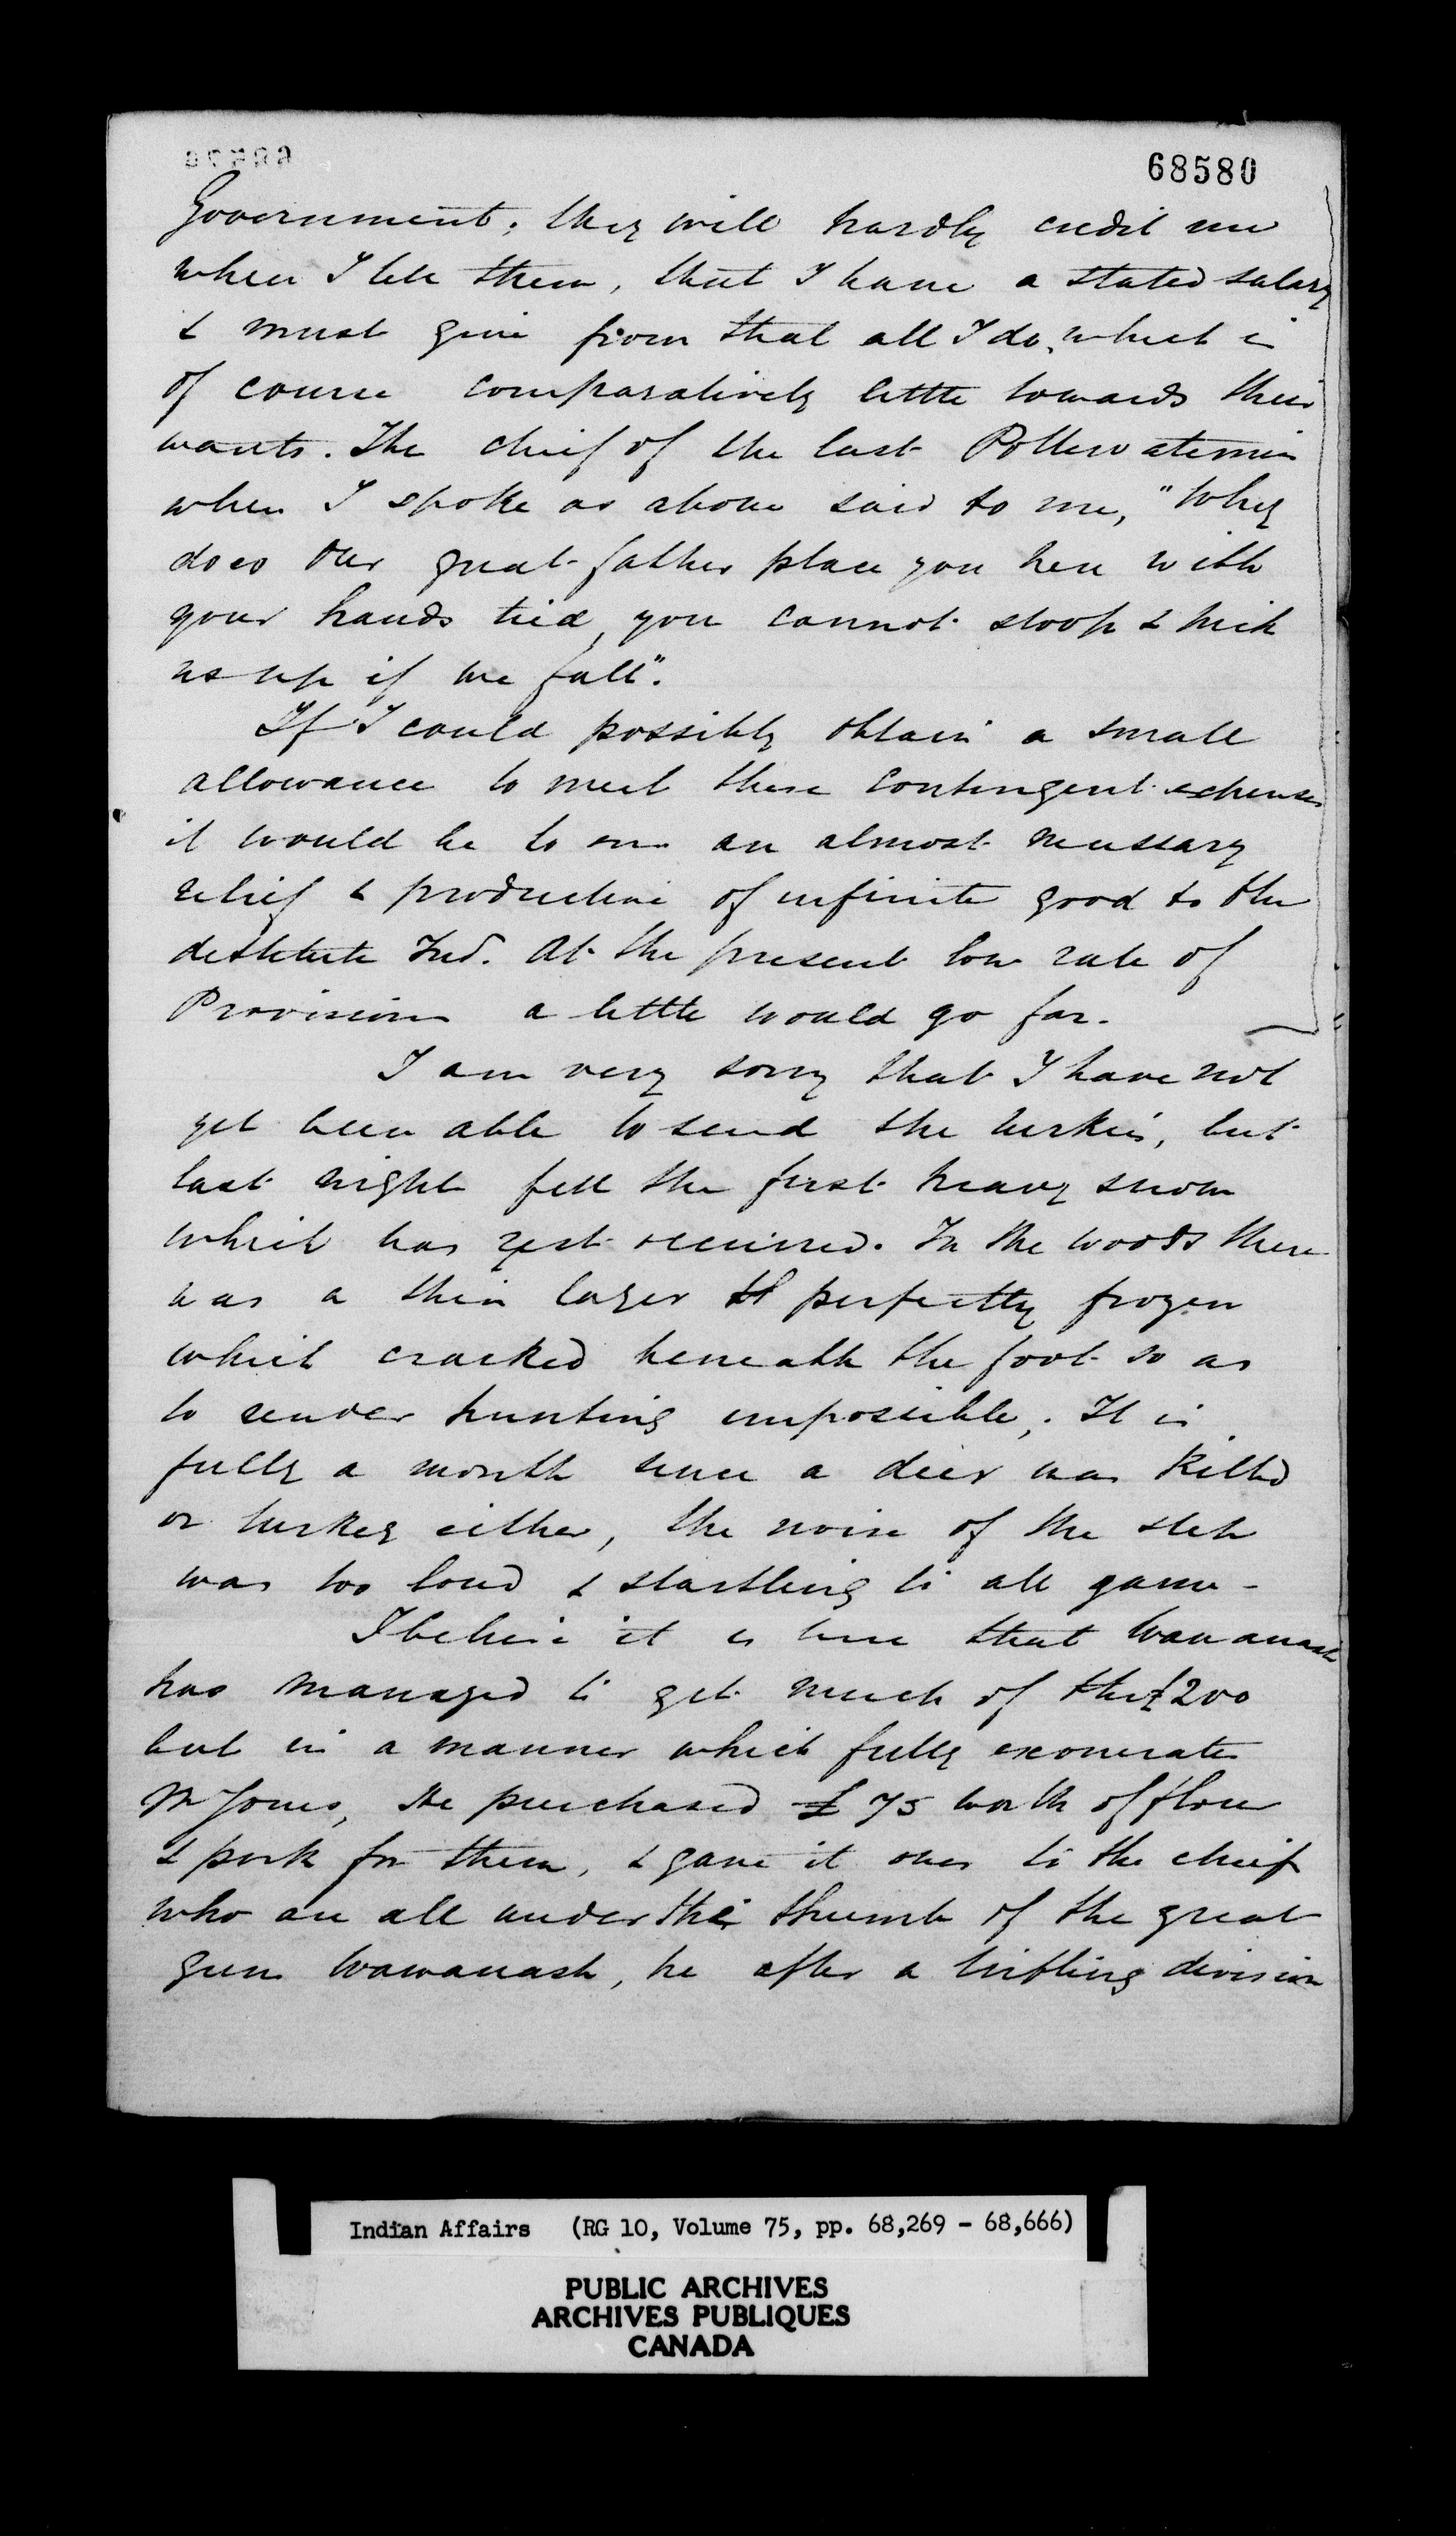 68580
Government; they will hardly credit me
when I tell them, that I have a stated salary
& must give from that all I do, which is
of course comparatively little towards their
wants. The chief of the last Pottewatemin
when I spoke as above said to me, "Why
does our great father place you here with
your hands tied, you cannot stoop & pick
us up if we fall".
If I could possibly obtain a small
allowance to meet these contingent expenses
it would be to me an almost necessary
relief & productive of infinite good to the
destitute Ind. At the present low rate of
Provisions a little would go far.
I am very sorry that I have not
yet been able to send the turkies, but
last night fell the first heavy snow
which has yet occurred. In the woods there
was a thin layer perfectly frozen
which cracked beneath the foot so as
to render hunting impossible. It is
fully a month since a deer was killed
or turkey either, the noise of the step
was too loud & startling to all game -
I believe it is true that Wawanash
has managed to get much of the £200
but in a manner which fully exonerates
Mr Jones, He purchased £75 worth of flour
& pork for them, & gave it over to the chiefs
who are all under the thumb of the great
gun Wawanash, he after a trifling division
Indian Affairs (RG 10, Volume 75, pp. 68,269 - 68,666)
PUBLIC ARCHIVES
ARCHIVES PUBLIQUES
CANADA